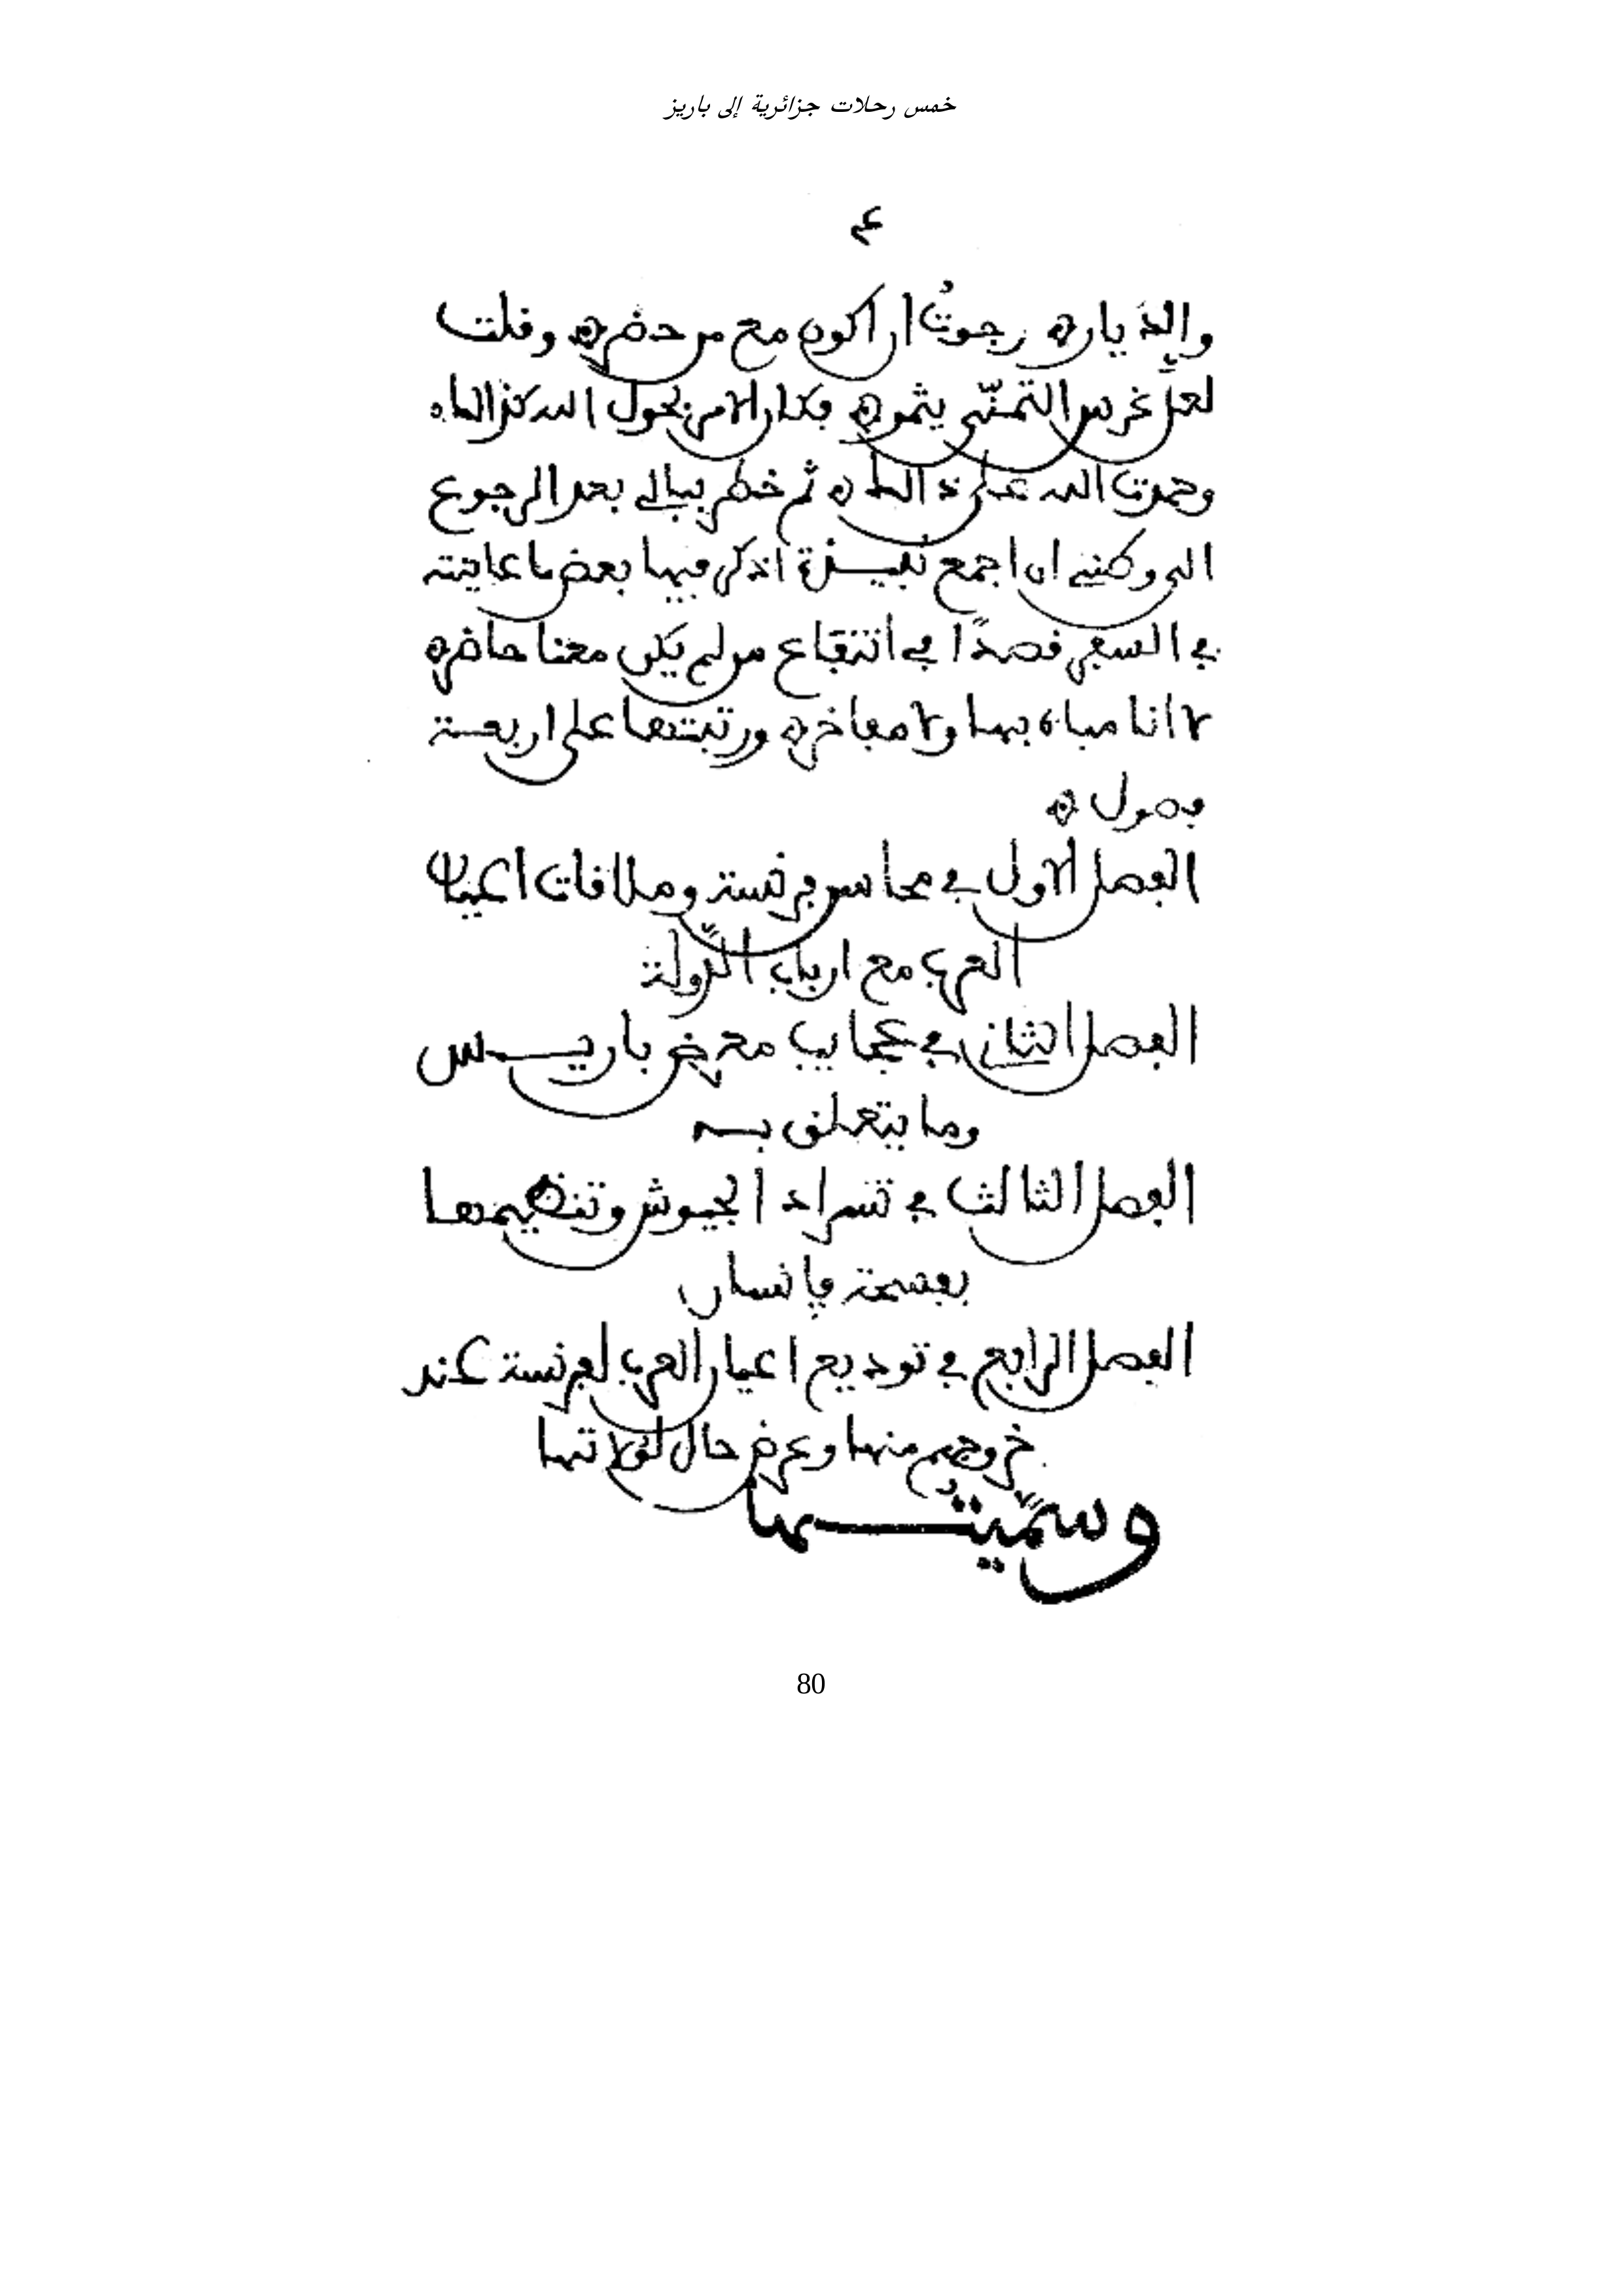 خمس رحلات جزائرية إلى باريز
٤
والدّيار ۞ رجوتُ ان اكون مع من حضر ۞ وقلت
لعلّ غرس التمنّي يثمر ۞ فكان الامر بحول الله كذالك ۞
وحمدت الله على ذالك ۞ ثم خطر ببالي بعد الرجوع
الى وطني ان اجمع نبيـــذة اذكر فيها بعض ما عاينته
في السفر قصدًا في انتفاع من لم يكن معنا حاضر ۞
لا انا مباه بها ولا مفاخر ۞ ورتبتها على اربعـة
فصول ۞
الفصل الاول في محاسن فرنسة وملاقات اعيان
العرب مع ارباب الدّولة
الفصل الثاني في عجايب معرض باريـــس
وما يتعلق بـــه
الفصل الثالث في تسراد الجيوش وتنظيمها
بفسحة فانسان
الفصل الرابع في توديع اعيان العرب لفرنسة عند
خروجهم منها وعرض حال لولاتها
وسمّيتُـــها
80